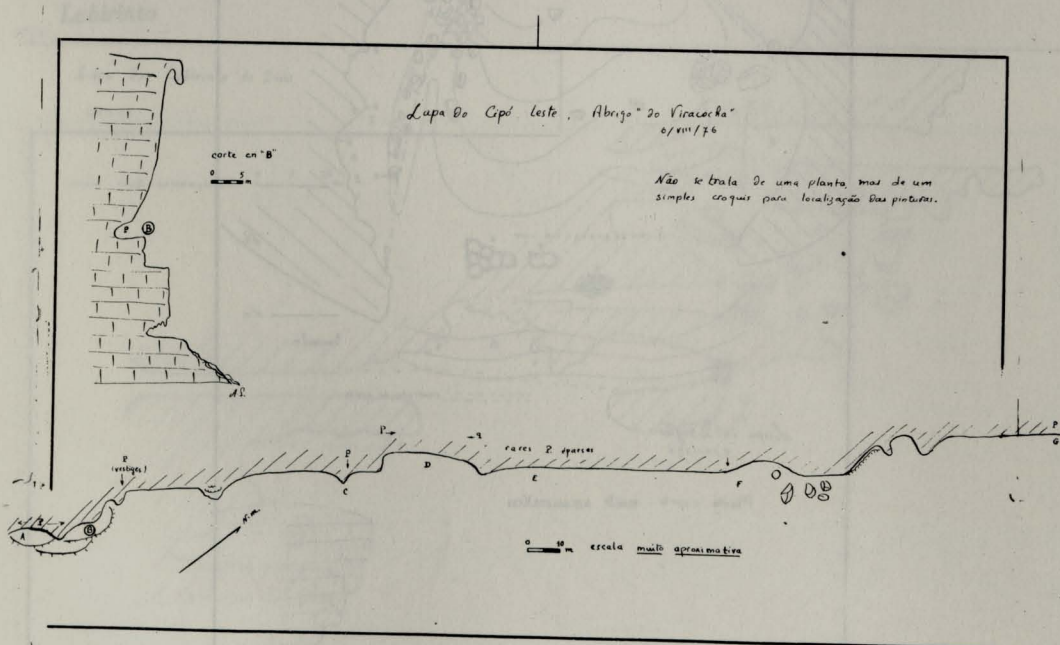 Lapa do Cipó Leste, Abrigo "do Viracocha"
6/VIII/76
corte en "B"
0 5 m
Não se trata de uma planta, mas de um
simples croquis para localização das pinturas.
P B
A.P.
P
P
(vestiges)
P
C
D
rares P. éparses
E
F
P
G
A
B
N.m.
0 10 m escala muito aproximativa